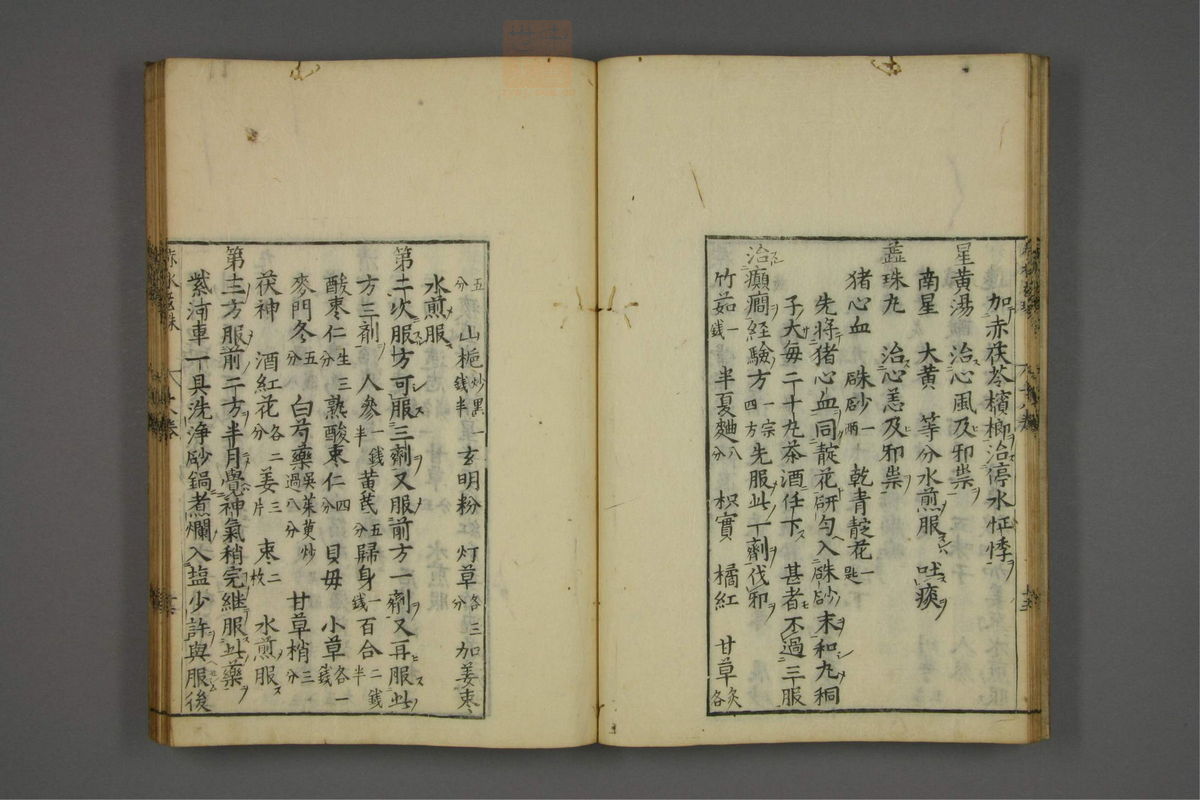 加赤茯苓檳榔治停水怔悸
星黄湯 治心風及邪祟
南星 大黄 等分水煎服 吐痰
蘂珠丸 治心恙及邪祟
猪心血 硃砂一兩 乾青靛花一匙
先將猪心血同靛花研匀入硃砂末和丸桐
子大每二十丸茶酒任下 甚者不過三服
治癲癎經驗方一宗四方先服此一劑伐邪
竹茹一錢 半夏麯八分 枳實 橘紅 甘草炙各
五分 山梔炒黒一錢半 玄明粉 灯草各三分 加姜枣
水煎服
第二次服方可服三劑又服前方一劑又再服此
方三劑 人參一錢半 黄芪五分 歸身一錢 百合二錢半
酸枣仁生三分 熟酸枣仁四分 貝母 小草各一錢
麥門冬五分 白芍藥吳茱萸炒過八分 甘草梢三分
茯神 酒紅花各二分 姜三片 枣二枚 水煎服
第三方服前二方半月覺神氣稍完継服此藥
紫河車一具洗浄砂鍋煮爛入塩少許與服後
赤水玄珠